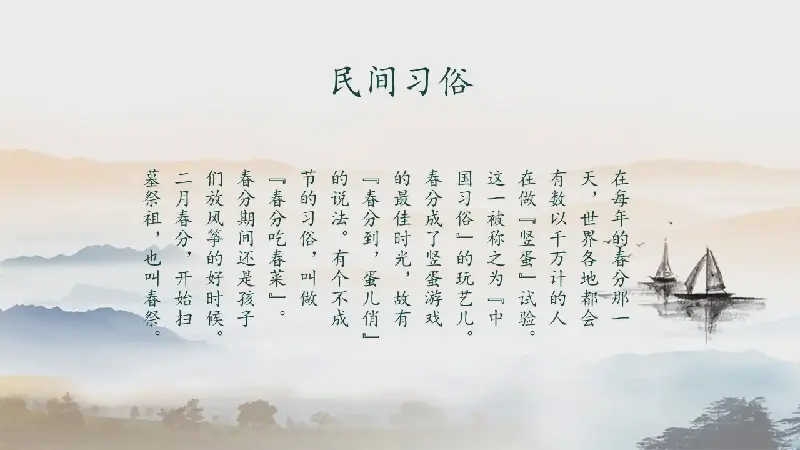 民间习俗
在每年的春分那一
天，世界各地都会
有数以千万计的人
在做『竖蛋』试验。
这一被称之为『中
国习俗』的玩艺儿。
春分成了竖蛋游戏
的最佳时光，故有
『春分到，蛋儿俏』
的说法。有个不成
节的习俗，叫做
『春分吃春菜』。
春分期间还是孩子
们放风筝的好时候。
二月春分，开始扫
墓祭祖，也叫春祭。